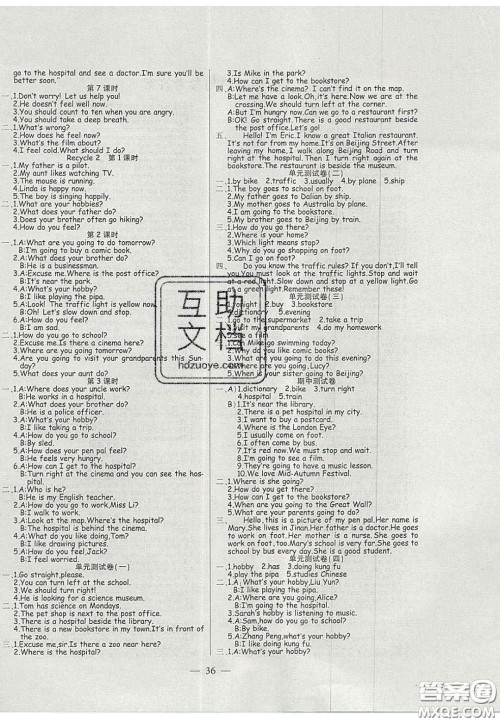 go to the hospital and see a doctor.I'm sure you'll be
better soon."
第 7 课时
一、1.Don't worry! Let us help you!
2.He doesn't feel well now.
3.You should count to ten when you are angry.
4.You should take a deep breath.
二、1.What's wrong?
2.How does he feel now?
3.What's the film about?
4.I feel cold.What should I do?
Recycle 2 第 1 课时
一、1.My father is a pilot.
2.My aunt likes watching TV.
3.The mouse is running.
4.Linda is happy now.
5.The boy is singing happily.
二、1.What are your hobbies?
2.What does your father do?
3.Does your brother often go hiking?
4.How do you feel?
第 2 课时
一、1.A:What are you going to do tomorrow?
B:I'm going to buy a comic book.
2.A:What does your brother do?
B:He is a businessman.
3.A:Excuse me.Where is the post office?
B:It's near the park.
4.A:What's your hobby?
B:I like playing the pipa.
5.A:Look! The traffic light is yellow now.
B:Oh! Let's slow down and stop.
6.A:How do you feel?
B:I am sad.
二、1.How do you go to school?
2.Excuse me.Is there a cinema here?
3.What are you going to do?
4.Are you going to visit your grandparents this Sun-
day?
5.What does your aunt do?
第 3 课时
一、1.A:Where does your uncle work?
B:He works in a hospital.
2.A:What does your brother do?
B:He is a police officer.
3.A:What's your hobby?
B:I like playing basketball.
4.A:How do you go to school?
B:By sled.
5.A:How does your pen pal feel?
B:He feels very hungry.
6.A:How can I get to the hospital?
B:Turn right at the cinema and you can see the hos-
pital.
二、1.A:Who is he?
B:He is my English teacher.
2.A:How do you go to work,Miss Li?
B:By subway.
3.A:Look at the map.Where's the hospital?
B:The hospital is behind the cinema.
4.A:What do you like doing,Tom?
B:I like drawing pictures.
5.A:How do you feel,Jack?
B:I feel tired.
单元测试卷(一)
一、1.Go straight,please.
2.You can turn left at the school.
3.He is looking for a science museum.
二、1.Tom has science on Mondays.
2.The pet shop is next to the post office.
3.There is a hospital beside the library.
4.There is a new bookstore in my town.It's in front of
the zoo.
三、1.Excuse me,sir.Is there a cinema near here?
2.Where is the hospital?
3.Is Mike in the park?
4.How can I get to the bookstore?
四、A:Where's the cinema? I can't find it on the map.
B:Let me have a look.Oh,it's here.Now we are at the
crossing.We should turn left at the corner.
A:But I'm hungry now.Can we go to a restaurant first?
B:OK! Go straight.There is a good restaurant beside
the post office.Let's go!
五、Hello! I'm Eric.I know a great Italian restaurant.
It's not far from my home.It's on Beijing Street.After
leaving my home,I walk along Beijing Road and turn
left at the bookstore.Then I turn right again at the
bookstore.The restaurant is beside the museum.
单元测试卷(二)
一、1.by bike 2.traffic 3.usually 4.by plane 5.ship
二、1.The boy goes to school on foot.
2.My father goes to Dalian by ship.
3.My mother goes to Australia by plane.
4.I am going to the bookstore.
5.My brother goes to Beijing by train.
三、1.How do you get there?
2.Where is your home?
3.Which light means stop?
4.How can I get to the bookstore?
5.Can I go on foot?
四、Do you know the traffic rules? If you go to
school on foot,you must look at the traffic lights.Stop and wait
at a red light.Slow down and stop at a yellow light.Go
at a green light.Remember these!
单元测试卷(三)
一、1.tonight 2.buy 3.bookstore
4.dictionary 5.evening
二、1.go to the supermarket 2.take a trip
3.visit grandparents 4.do my homework
三、1.see a film
2.Is Mike going swimming today?
3.What are you going to do?
4.What are you going to do this evening?
5.What are you going to buy?
6.When is your sister going to Beijing?
期中测试卷
一、A) 1.dictionary 2.bike 3.turn right
B) 1.It's near the library.
2.There is a pet hospital in my city.
3.I want to buy a postcard.
4.Where is London Eye?
5.I usually come on foot.
6.I often come by subway.
7.It's red now.We must stop and wait.
8.I am going to see a film.
9.They're going to have a music lesson.
10.We love Mid-Autumn Festival.
二、1.Where is your school?
2.How do you get there?
3.How can I get to the bookstore?
4.When are you going to the Great Wall?
5.What are your parents going to do?
三、Hello,this is a picture of my pen pal.Her name is
Mary.She lives in Jinan.Her father is a doctor.He goes to
work on foot.Her mother is a teacher.She goes to work
on foot,too.Mary's school is very far.She goes to
school by bus every day.She is a good student.
单元测试卷(四)
一、1.hobby 2.has 3.doing kung fu
4.play the pipa 5.studies Chinese
二、1.A:What's your hobby,Liu Yun?
B:I like playing the pipa.
2.A:Where are you going,Alice?
B:I am going to the hospital.
3.Sarah's hobby is listening to music.
4.A:Sam,how do you go to school?
B:By bike.
5.A:Zhang Peng,what's your hobby?
B:I like doing kung fu.
三、1.A:What's your hobby?
互助文档
hdzuoye.com
36
答案圈
MXQE.COM